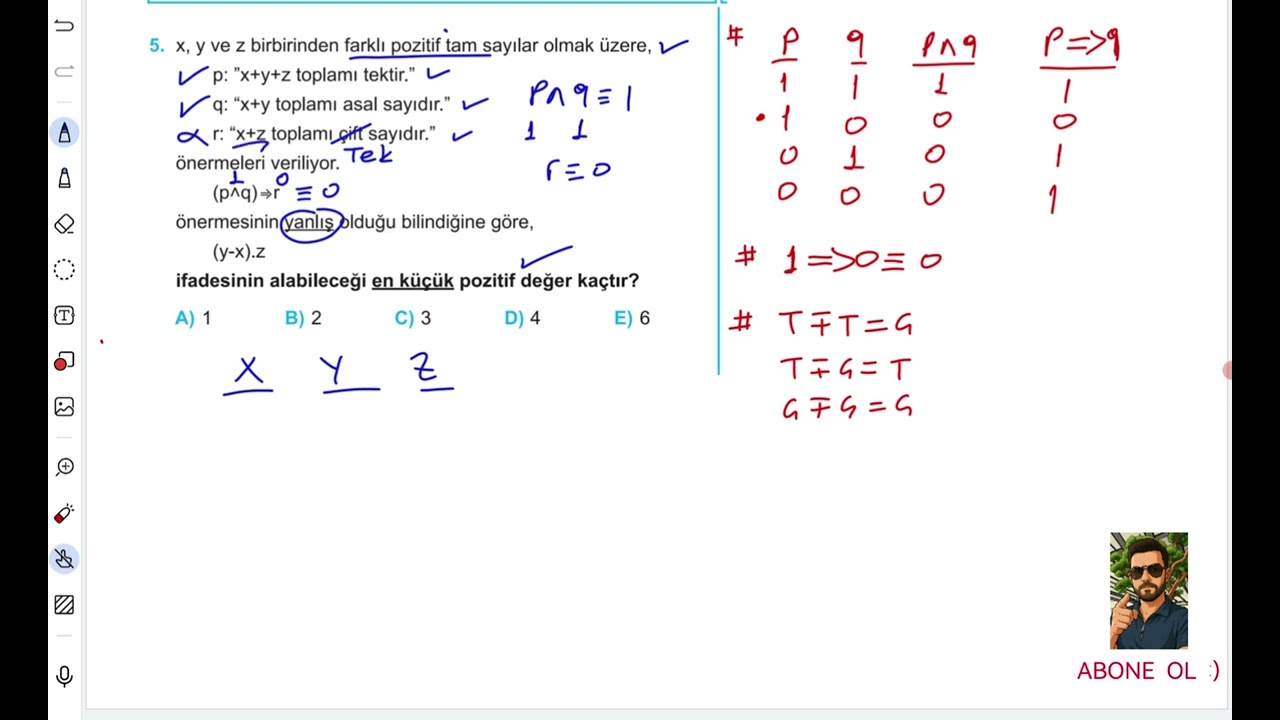 5. x, y ve z birbirinden farklı pozitif tam sayılar olmak üzere,
p: "x+y+z toplamı tektir."
q: "x+y toplamı asal sayıdır."
r: "x+z toplamı çift sayıdır."
Tek
önermeleri veriliyor.
1 0
(p∧q)⇒r ≡ 0
önermesinin yanlış olduğu bilindiğine göre,
(y-x).z
ifadesinin alabileceği en küçük pozitif değer kaçtır?
A) 1 B) 2 C) 3 D) 4 E) 6
X Y Z
P∧q≡1
1 1
r≡0
# P q P∧q P=>q
1 1 1 1
1 0 0 0
0 1 0 1
0 0 0 1
# 1=>0≡0
# T∓T=G
T∓G=T
G∓G=G
ABONE OL :)